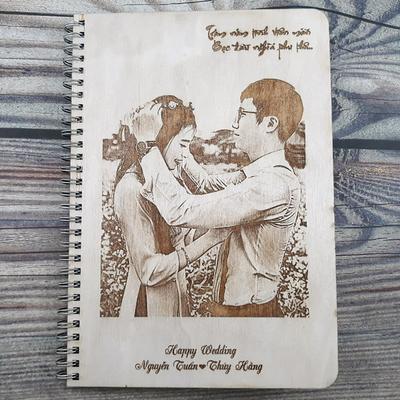 Trăm năm tình viên mãn
Bạc đầu nghĩa phu thê..
Happy Wedding
Nguyên Tuấn❤Thùy Hằng